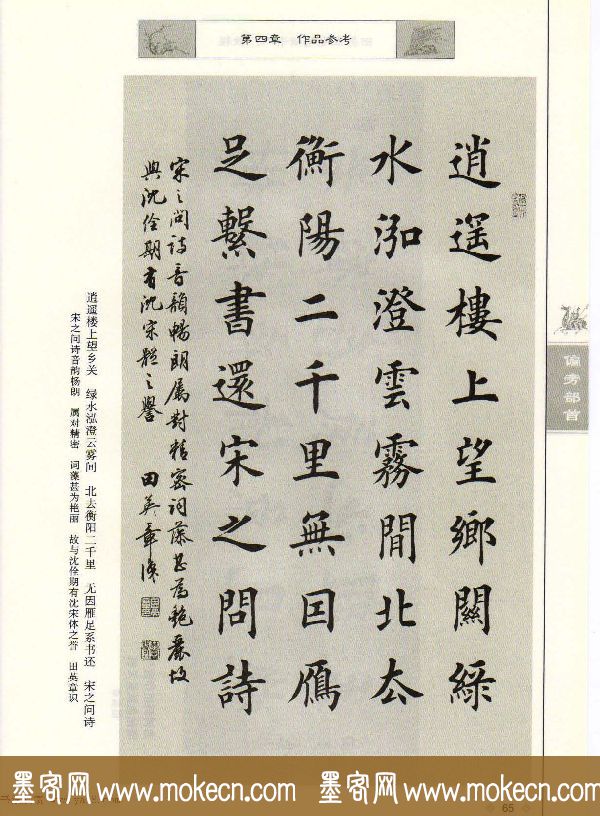 第四章 作品参考
逍遥樓上望鄉關綠
水泓澄雲霧間北去
衡陽二千里無因鴈
足繫書還宋之問詩
宋之问诗音韻暢朗属对精密词藻甚为艳丽故
與沈佺期有沈宋體之譽 田英章識
逍遥楼上望乡关 绿水泓澄云雾间 北去衡阳二千里 无因雁足系书还 宋之问诗
宋之问诗音韵杨朗 属对精密 词藻甚为艳丽 故与沈佺期有沈宋体之誉 田英章识
偏旁部首
65
墨客网 www.mokecn.com 墨客网 www.mokecn.com